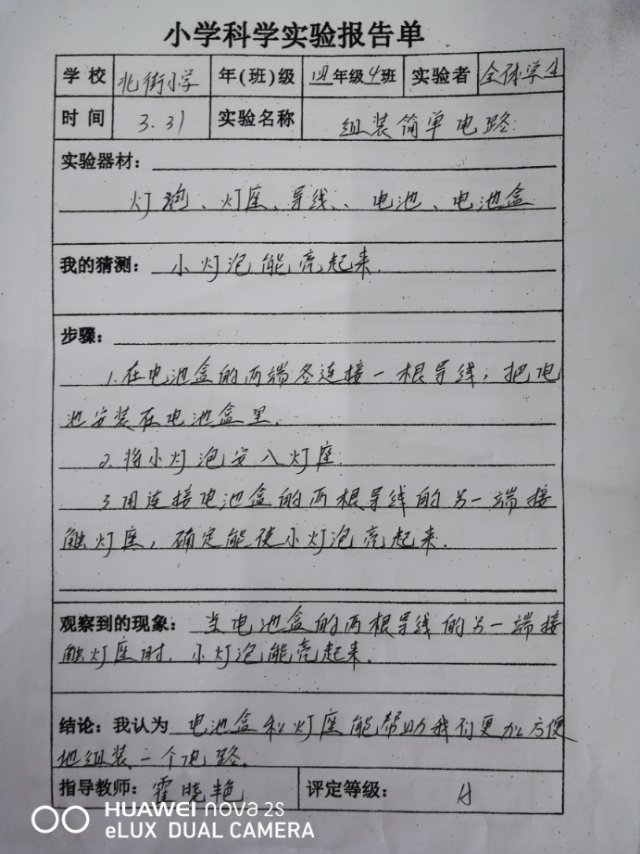 小学科学实验报告单
学校 北街小学 年(班)级 四年级4班 实验者 全体学生
时间 3.31 实验名称 组装简单电路.
实验器材:
灯泡、灯座、导线、、电池、电池盒
我的猜测: 小灯泡能亮起来.
步骤:
1.在电池盒的两端各连接一根导线,把电
池安装在电池盒里.
2.将小灯泡安入灯座.
3.用连接电池盒的两根导线的另一端接
触灯座,确定能使小灯泡亮起来.
观察到的现象: 当电池盒的两根导线的另一端接
触灯座时.小灯泡能亮起来.
结论:我认为 电池盒和灯座能帮助我们更加方便
地组装一个电路.
指导教师: 霍晓艳 评定等级: A
HUAWEI nova 2S
eLUX DUAL CAMERA